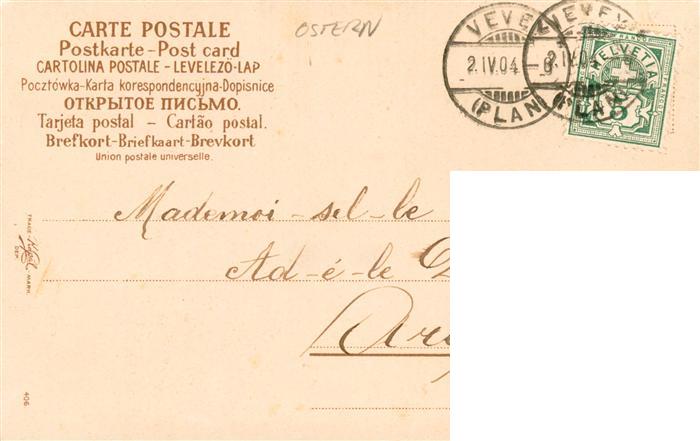 CARTE POSTALE
Postkarte - Post card
CARTOLINA POSTALE - LEVELEZŐ-LAP
Pocztówka-Karta korespondencyjna-Dopisnice
ОТКРЫТОЕ ПИСЬМО.
Tarjeta postal - Cartão postal.
Brefkort-Briefkaart-Brevkort
Union postale universelle.
OSTERN
VEVEY
2.IV.04 - 8
(PLAN)
VEVEY
2.IV.04
(PLAN)
FRANCO
HELVETIA
5
Mademoi-sel-le
Ad-é-le
TRADE
MARK
DEP.
406